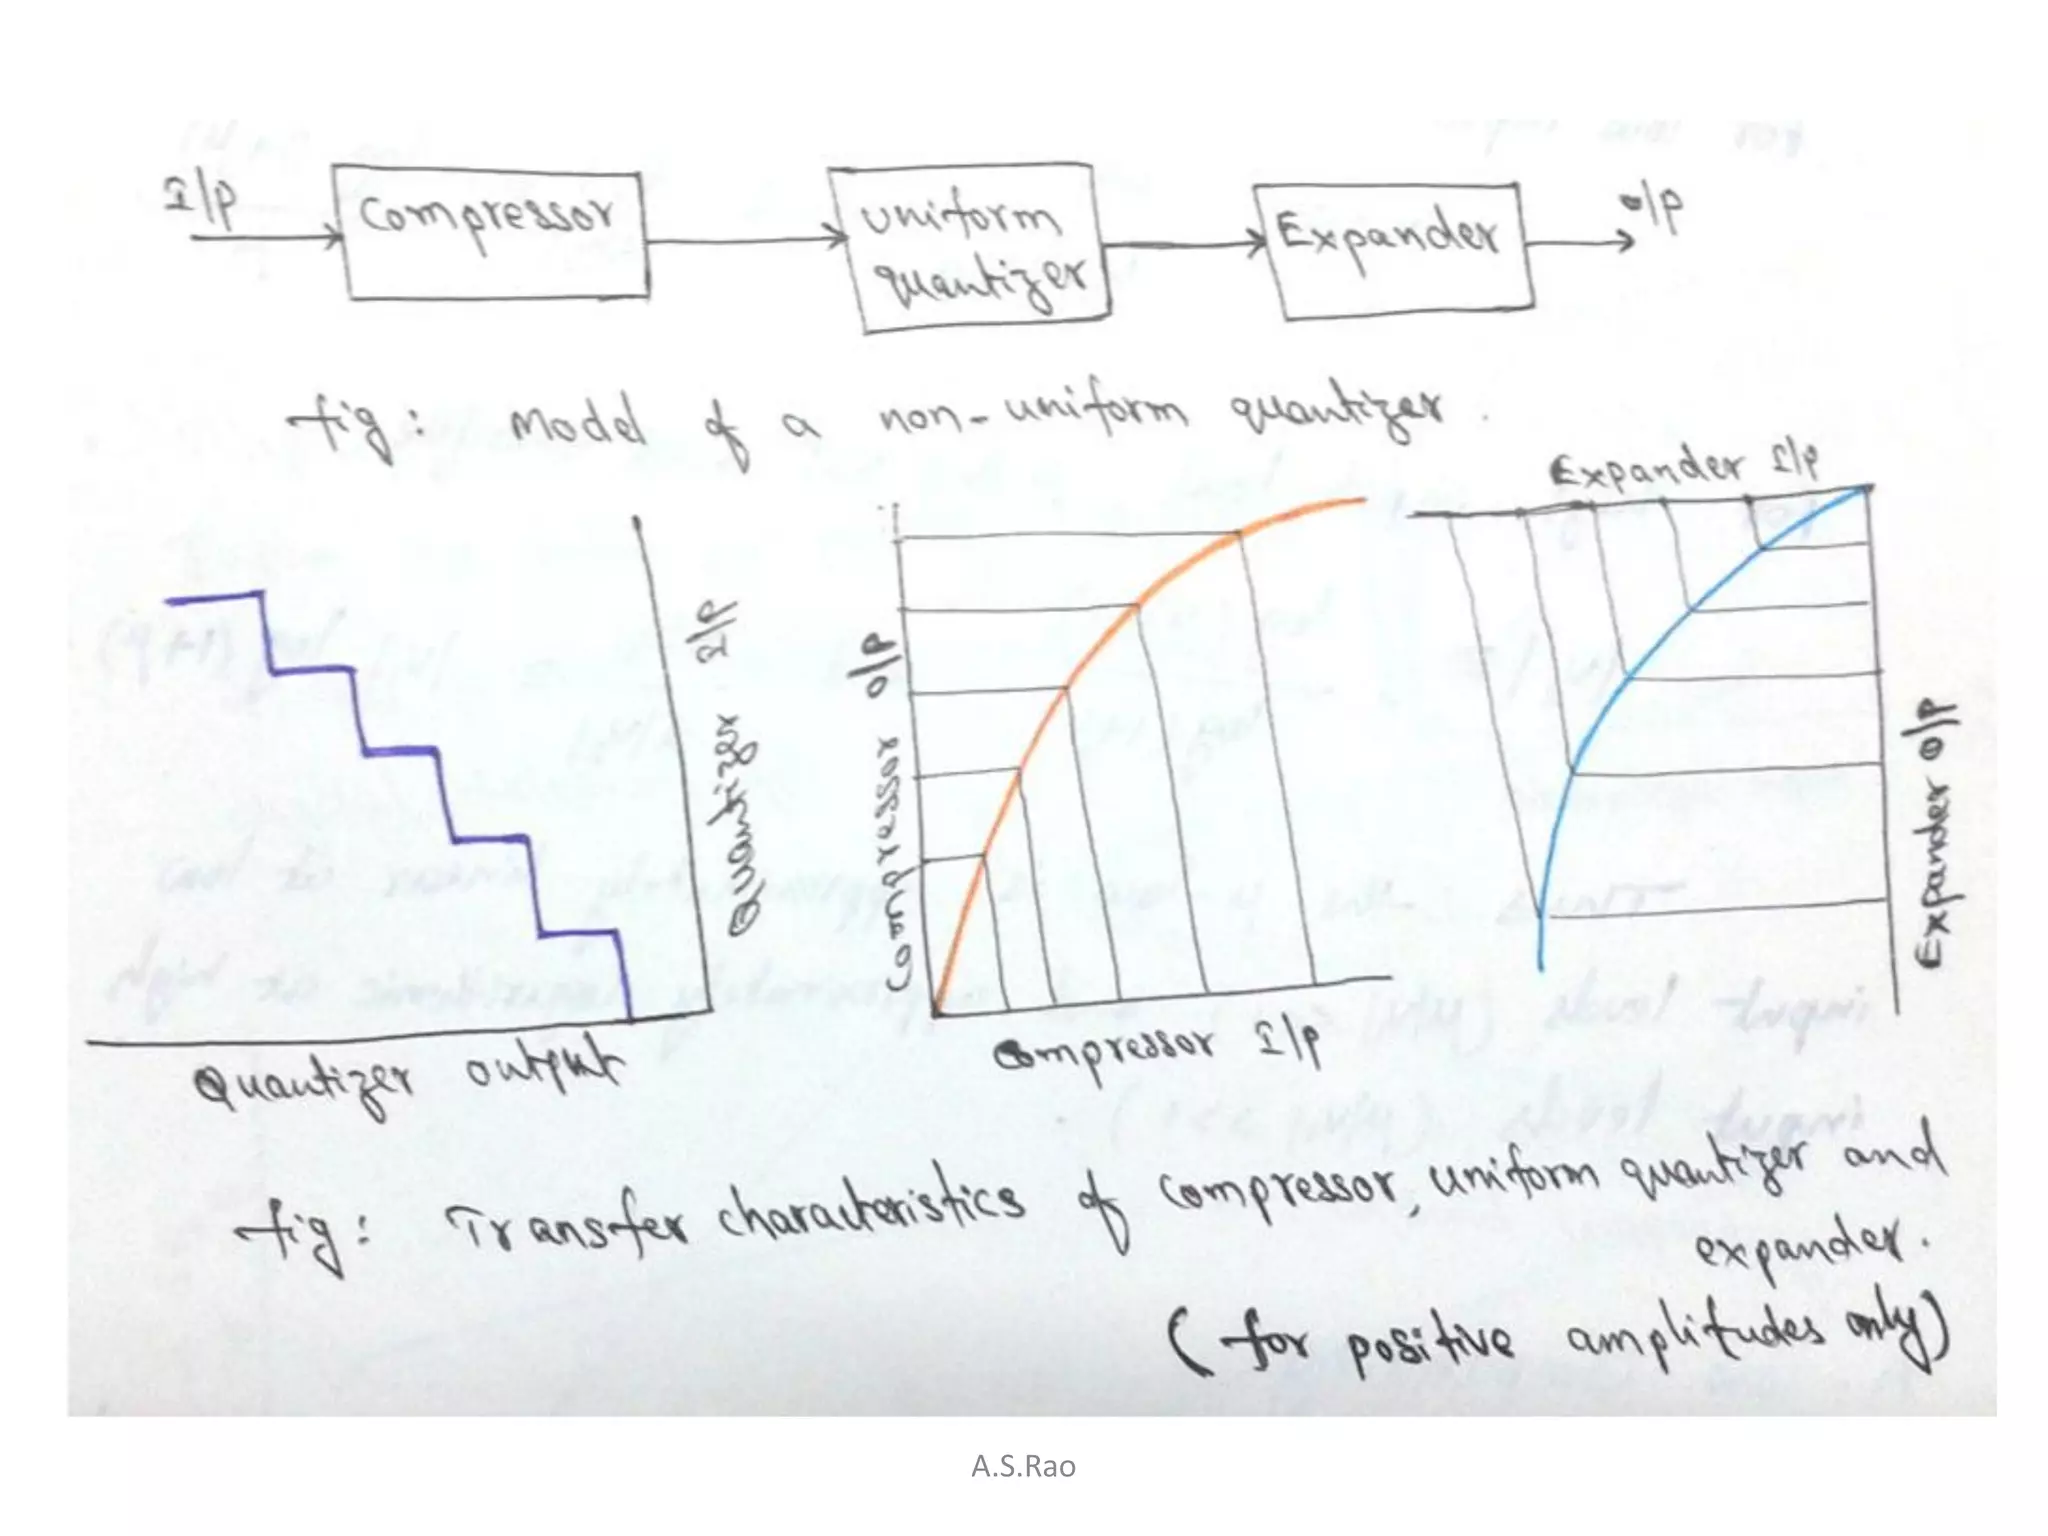 I/P
Compressor
uniform
quantizer
Expander
o/p
fig: Model of a non-uniform quantizer.
Quantizer I/P
Quantizer output
Compressor o/p
Compressor I/p
Expander I/p
Expander o/p
fig: Transfer characteristics of compressor, uniform quantizer and
expander.
(for positive amplitudes only)
A.S.Rao